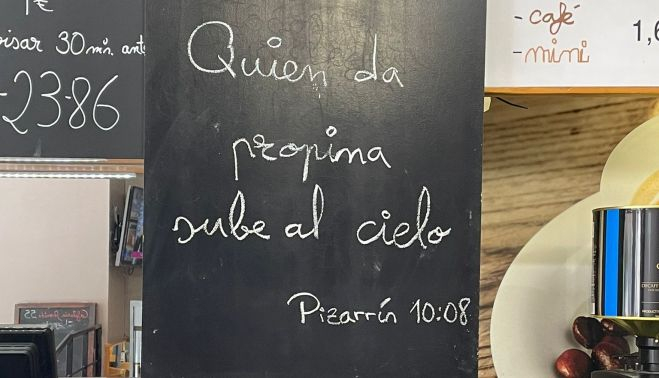 1€
30 min. ant
2386
Quien da
propina
sube al cielo
Pizarrín 10:08
- café
- mini
1,6